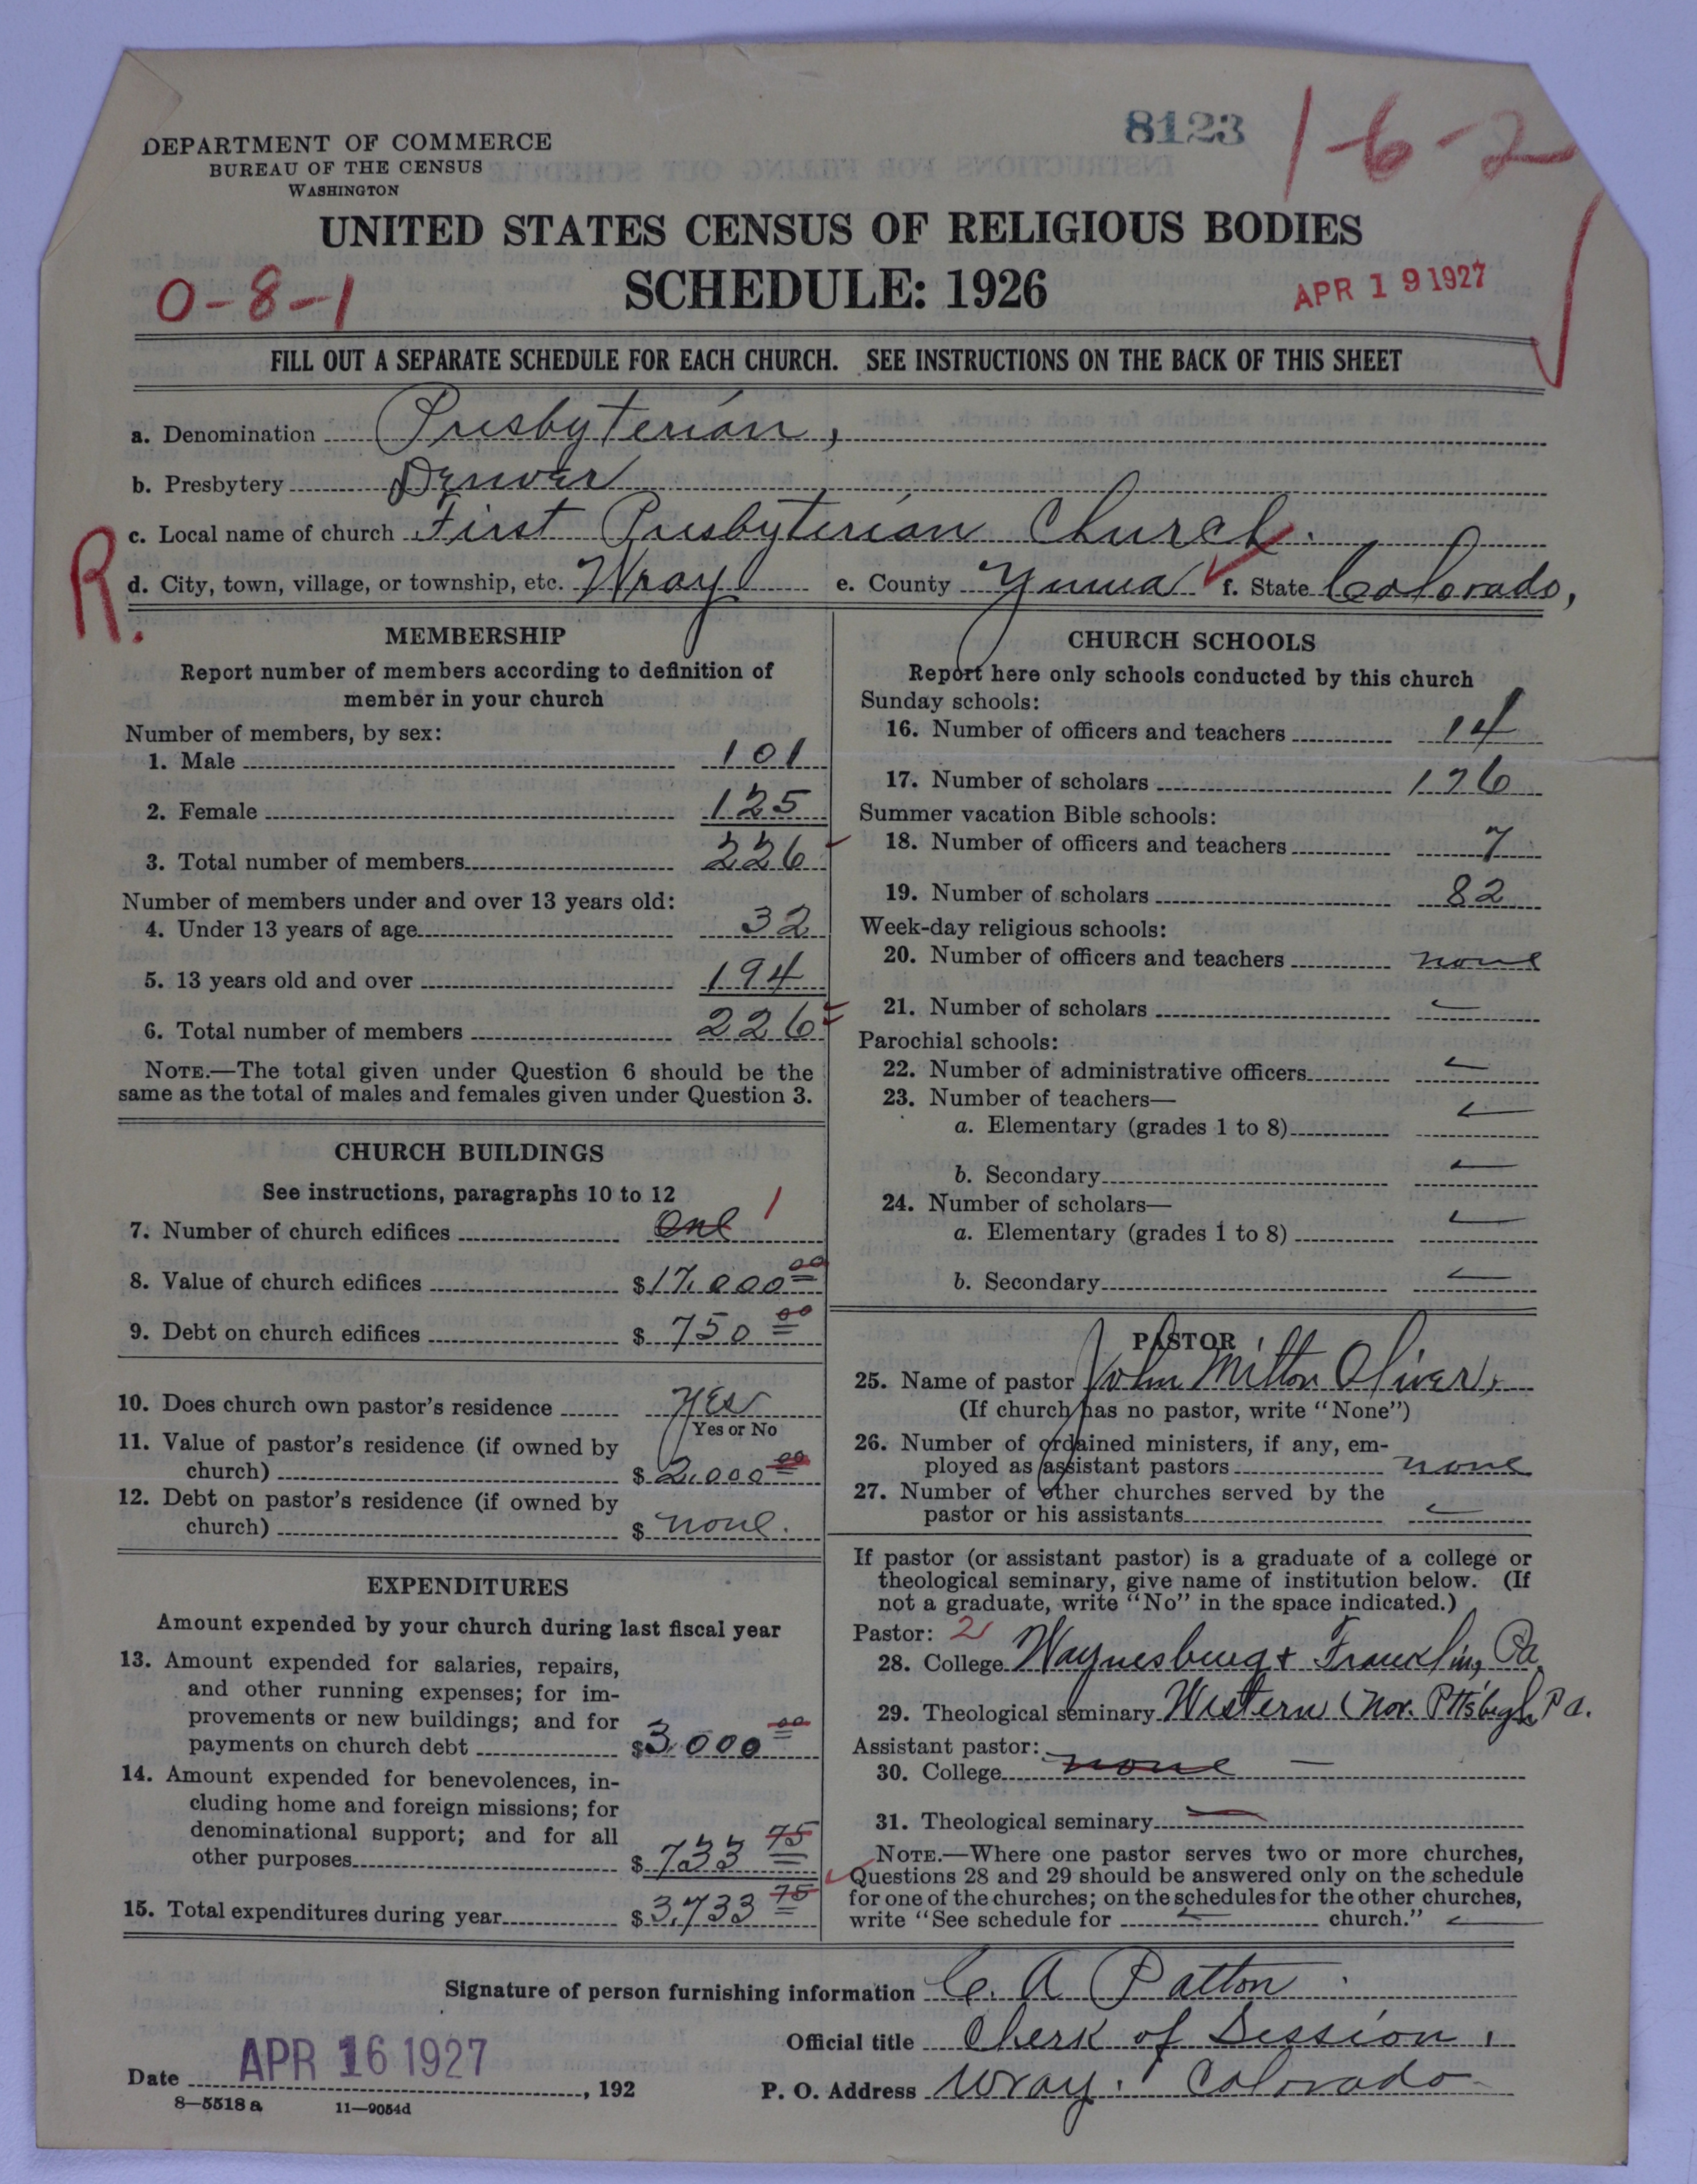 8123
1-6-2
DEPARTMENT OF COMMERCE
BUREAU OF THE CENSUS
WASHINGTON
UNITED STATES CENSUS OF RELIGIOUS BODIES
SCHEDULE: 1926
0-8-1
APR 19 1927
FILL OUT A SEPARATE SCHEDULE FOR EACH CHURCH. SEE INSTRUCTIONS ON THE BACK OF THIS SHEET
a. Denomination Presbyterian,
b. Presbytery Denver
c. Local name of church First Presbyterian Church.
R.
d. City, town, village, or township, etc. Wray e. County Yuma f. State Colorado,
MEMBERSHIP
Report number of members according to definition of
member in your church
Number of members, by sex:
1. Male 101
2. Female 125
3. Total number of members 226
Number of members under and over 13 years old:
4. Under 13 years of age 32
5. 13 years old and over 194
6. Total number of members 226
NOTE.—The total given under Question 6 should be the
same as the total of males and females given under Question 3.
CHURCH BUILDINGS
See instructions, paragraphs 10 to 12
7. Number of church edifices One 1
8. Value of church edifices $17,000 00
9. Debt on church edifices $ 750 00
10. Does church own pastor's residence Yes
Yes or No
11. Value of pastor's residence (if owned by
church) $ 2,000 00
12. Debt on pastor's residence (if owned by
church) $ none.
EXPENDITURES
Amount expended by your church during last fiscal year
13. Amount expended for salaries, repairs,
and other running expenses; for im-
provements or new buildings; and for
payments on church debt $3,000 00
14. Amount expended for benevolences, in-
cluding home and foreign missions; for
denominational support; and for all
other purposes $ 733 75
15. Total expenditures during year $ 3,733 75
CHURCH SCHOOLS
Report here only schools conducted by this church
Sunday schools:
16. Number of officers and teachers 14
17. Number of scholars
Summer vacation Bible schools:
18. Number of officers and teachers 7
19. Number of scholars 82
Week-day religious schools:
20. Number of officers and teachers none
21. Number of scholars
Parochial schools:
22. Number of administrative officers
23. Number of teachers—
a. Elementary (grades 1 to 8)
b. Secondary
24. Number of scholars—
a. Elementary (grades 1 to 8)
b. Secondary
PASTOR
25. Name of pastor John Milton Oliver,
(If church has no pastor, write "None")
26. Number of ordained ministers, if any, em-
ployed as assistant pastors none
27. Number of other churches served by the
pastor or his assistants
If pastor (or assistant pastor) is a graduate of a college or
theological seminary, give name of institution below. (If
not a graduate, write "No" in the space indicated.)
Pastor: 2
28. College Waynesburg & Franklin, Pa
29. Theological seminary Western (Nor. Pittsbugh Pa.
Assistant pastor:
30. College none
31. Theological seminary
NOTE.—Where one pastor serves two or more churches,
Questions 28 and 29 should be answered only on the schedule
for one of the churches; on the schedules for the other churches,
write "See schedule for church."
Signature of person furnishing information C. A. Patton
Official title Clerk of Session.
Date APR 16 1927, 192
P. O. Address Wray. Colorado
8—5518 a 11—9054d